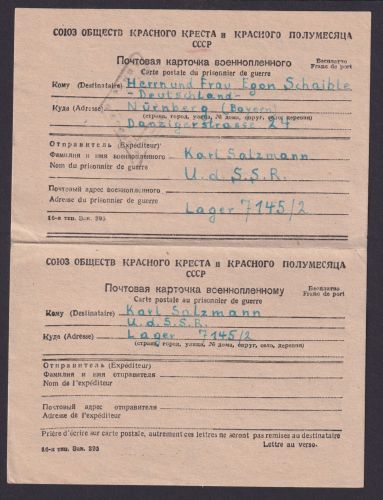 СОЮЗ ОБЩЕСТВ КРАСНОГО КРЕСТА и КРАСНОГО ПОЛУМЕСЯЦА
СССР
Почтовая карточка военнопленного
Бесплатно
Carte postale du prisonnier de guerre
Franc de port
Кому (Destinataire) Herrn und Frau Egon Schaible
- Deutschland -
Куда (Adresse) Nürnberg (Bayern)
(страна, город, улица, № дома, округ, село, деревня)
Danzigerstrasse 27
Отправитель (Expéditeur)
Фамилия и имя военнопленного Karl Salzmann
Nom du prisonnier de guerre
U.d.S.S.R.
Почтовый адрес военнопленного
Adresse du prisonnier de guerre Lager 7145/2
16-я тип. Зак. 395
СОЮЗ ОБЩЕСТВ КРАСНОГО КРЕСТА и КРАСНОГО ПОЛУМЕСЯЦА
СССР
Почтовая карточка военнопленному
Бесплатно
Carte postale au prisonnier de guerre
Franc de port
Кому (Destinataire) Karl Salzmann
U.d.S.S.R.
Куда (Adresse) Lager 7145/2
(страна, город, улица, № дома, округ, село, деревня)
Отправитель (Expéditeur)
Фамилия и имя отправителя
Nom de l'expéditeur
Почтовый адрес отправителя
Adresse de l'expéditeur
Prière d'écrire sur carte postale, autrement ces lettres ne seront pas remises au destinataire
16-я тип. Зак. 395
Lettre au verso.